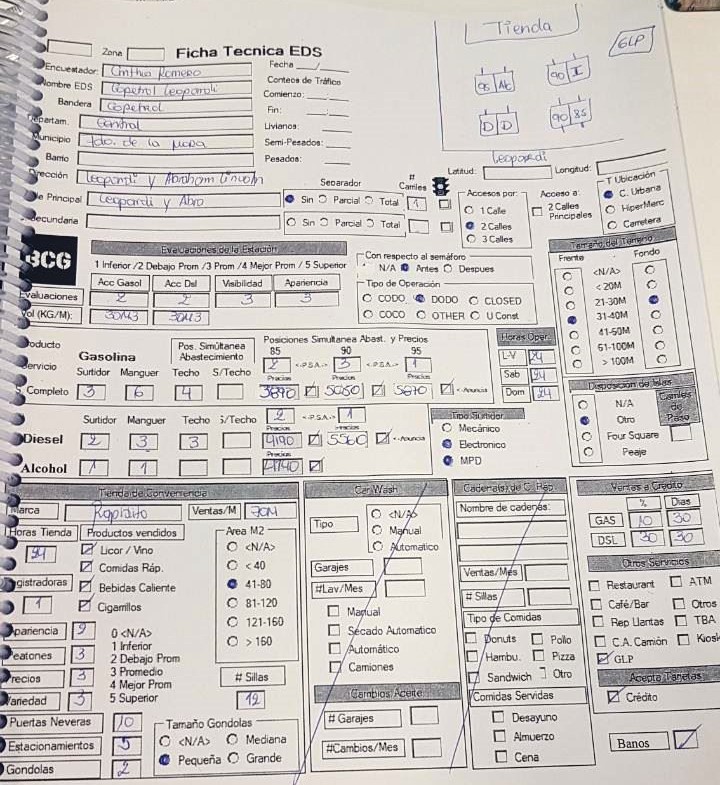 Tienda
GLP
95 Alc
90 I
D D
90 85
Leopardi
Zona
Ficha Tecnica EDS
Encuestador: Cinthia Romero
Fecha __/__/__
Nombre EDS Copetrol Leopardi
Conteos de Tráfico
Bandera Copetrol
Comienzo:
Departam. Central
Fin:
Municipio Fdo. de la mora
Livianos:
Semi-Pesados:
Barrio
Pesados:
Dirección Leopardi y Abraham Lincoln
Latitud: Longitud:
Separador # Carriles
Calle Principal Leopardi y Abro
Sin Parcial Total 1
Secundaria
Sin Parcial Total
Accesos por:
1 Calle
2 Calles
3 Calles
Acceso a:
2 Calles Principales
T Ubicación
C. Urbana
HiperMerc
Carretera
BCG
Evaluaciones de la Estación
1 Inferior /2 Debajo Prom /3 Prom /4 Mejor Prom / 5 Superior
Acc Gasol Acc Dsl Visibilidad Apariencia
Evaluaciones 2 2 3 3
Vol (KG/M): 30M3 30M3
Con respecto al semáforo
N/A Antes Despues
Tipo de Operación
CODO DODO CLOSED
COCO OTHER U Const
Tamaño del Terreno
Frente Fondo
<N/A>
< 20M
21-30M
31-40M
41-50M
51-100M
> 100M
Producto
Servicio
Gasolina
Pos. Simúltanea Abastecimiento
Posiciones Simultanea Abast. y Precios
85 90 95
Surtidor Manguer Techo S/Techo
2 <-P.S.A.-> 3 <-P.S.A.-> 1
Precios Precios Precios
Completo 3 6 4
3890 5050 5670 <-Anuncia
Horas Oper.
L-V 24
Sab 24
Dom 24
Surtidor Manguer Techo S/Techo
2 <-P.S.A.-> 1
Precios Precios
Diesel 2 3 3
4190 5560 <-Anuncia
Precios
Alcohol 1 1
4140
Tipo Surtidor
Mecánico
Electronico
MPD
Disposición de Islas
N/A
Otro
Four Square
Peaje
Carriles de Paso
Tienda de Conveniencia
Marca Rapidito Ventas/M 70M
Horas Tienda 24
Productos vendidos
Licor / Vino
Comidas Ráp.
Bebidas Caliente
Cigarrillos
Registradoras 1
Area M2
<N/A>
< 40
41-80
81-120
121-160
> 160
Apariencia 2
Peatones 3
Precios 3
Variedad 3
0 <N/A>
1 Inferior
2 Debajo Prom
3 Promedio
4 Mejor Prom
5 Superior
# Sillas
12
Puertas Neveras 10
Estacionamientos 5
Gondolas 2
Tamaño Gondolas
<N/A> Mediana
Pequeña Grande
Car Wash
Tipo
<N/A>
Manual
Automatico
Garajes
#Lav/Mes
Manual
Secado Automatico
Automático
Camiones
Cambios Aceite
# Garajes
#Cambios/Mes
Cadena(s) de C. Rap.
Nombre de cadenas:
Ventas/Mes
# Sillas
Tipo de Comidas
Donuts Pollo
Hambu. Pizza
Sandwich Otro
Comidas Servidas
Desayuno
Almuerzo
Cena
Ventas a Credito
% Dias
GAS 10 30
DSL 30 30
Otros Servicios
Restaurant ATM
Café/Bar Otros
Rep Llantas TBA
C.A. Camión Kiosk
GLP
Acepta Tarjetas
Crédito
Banos